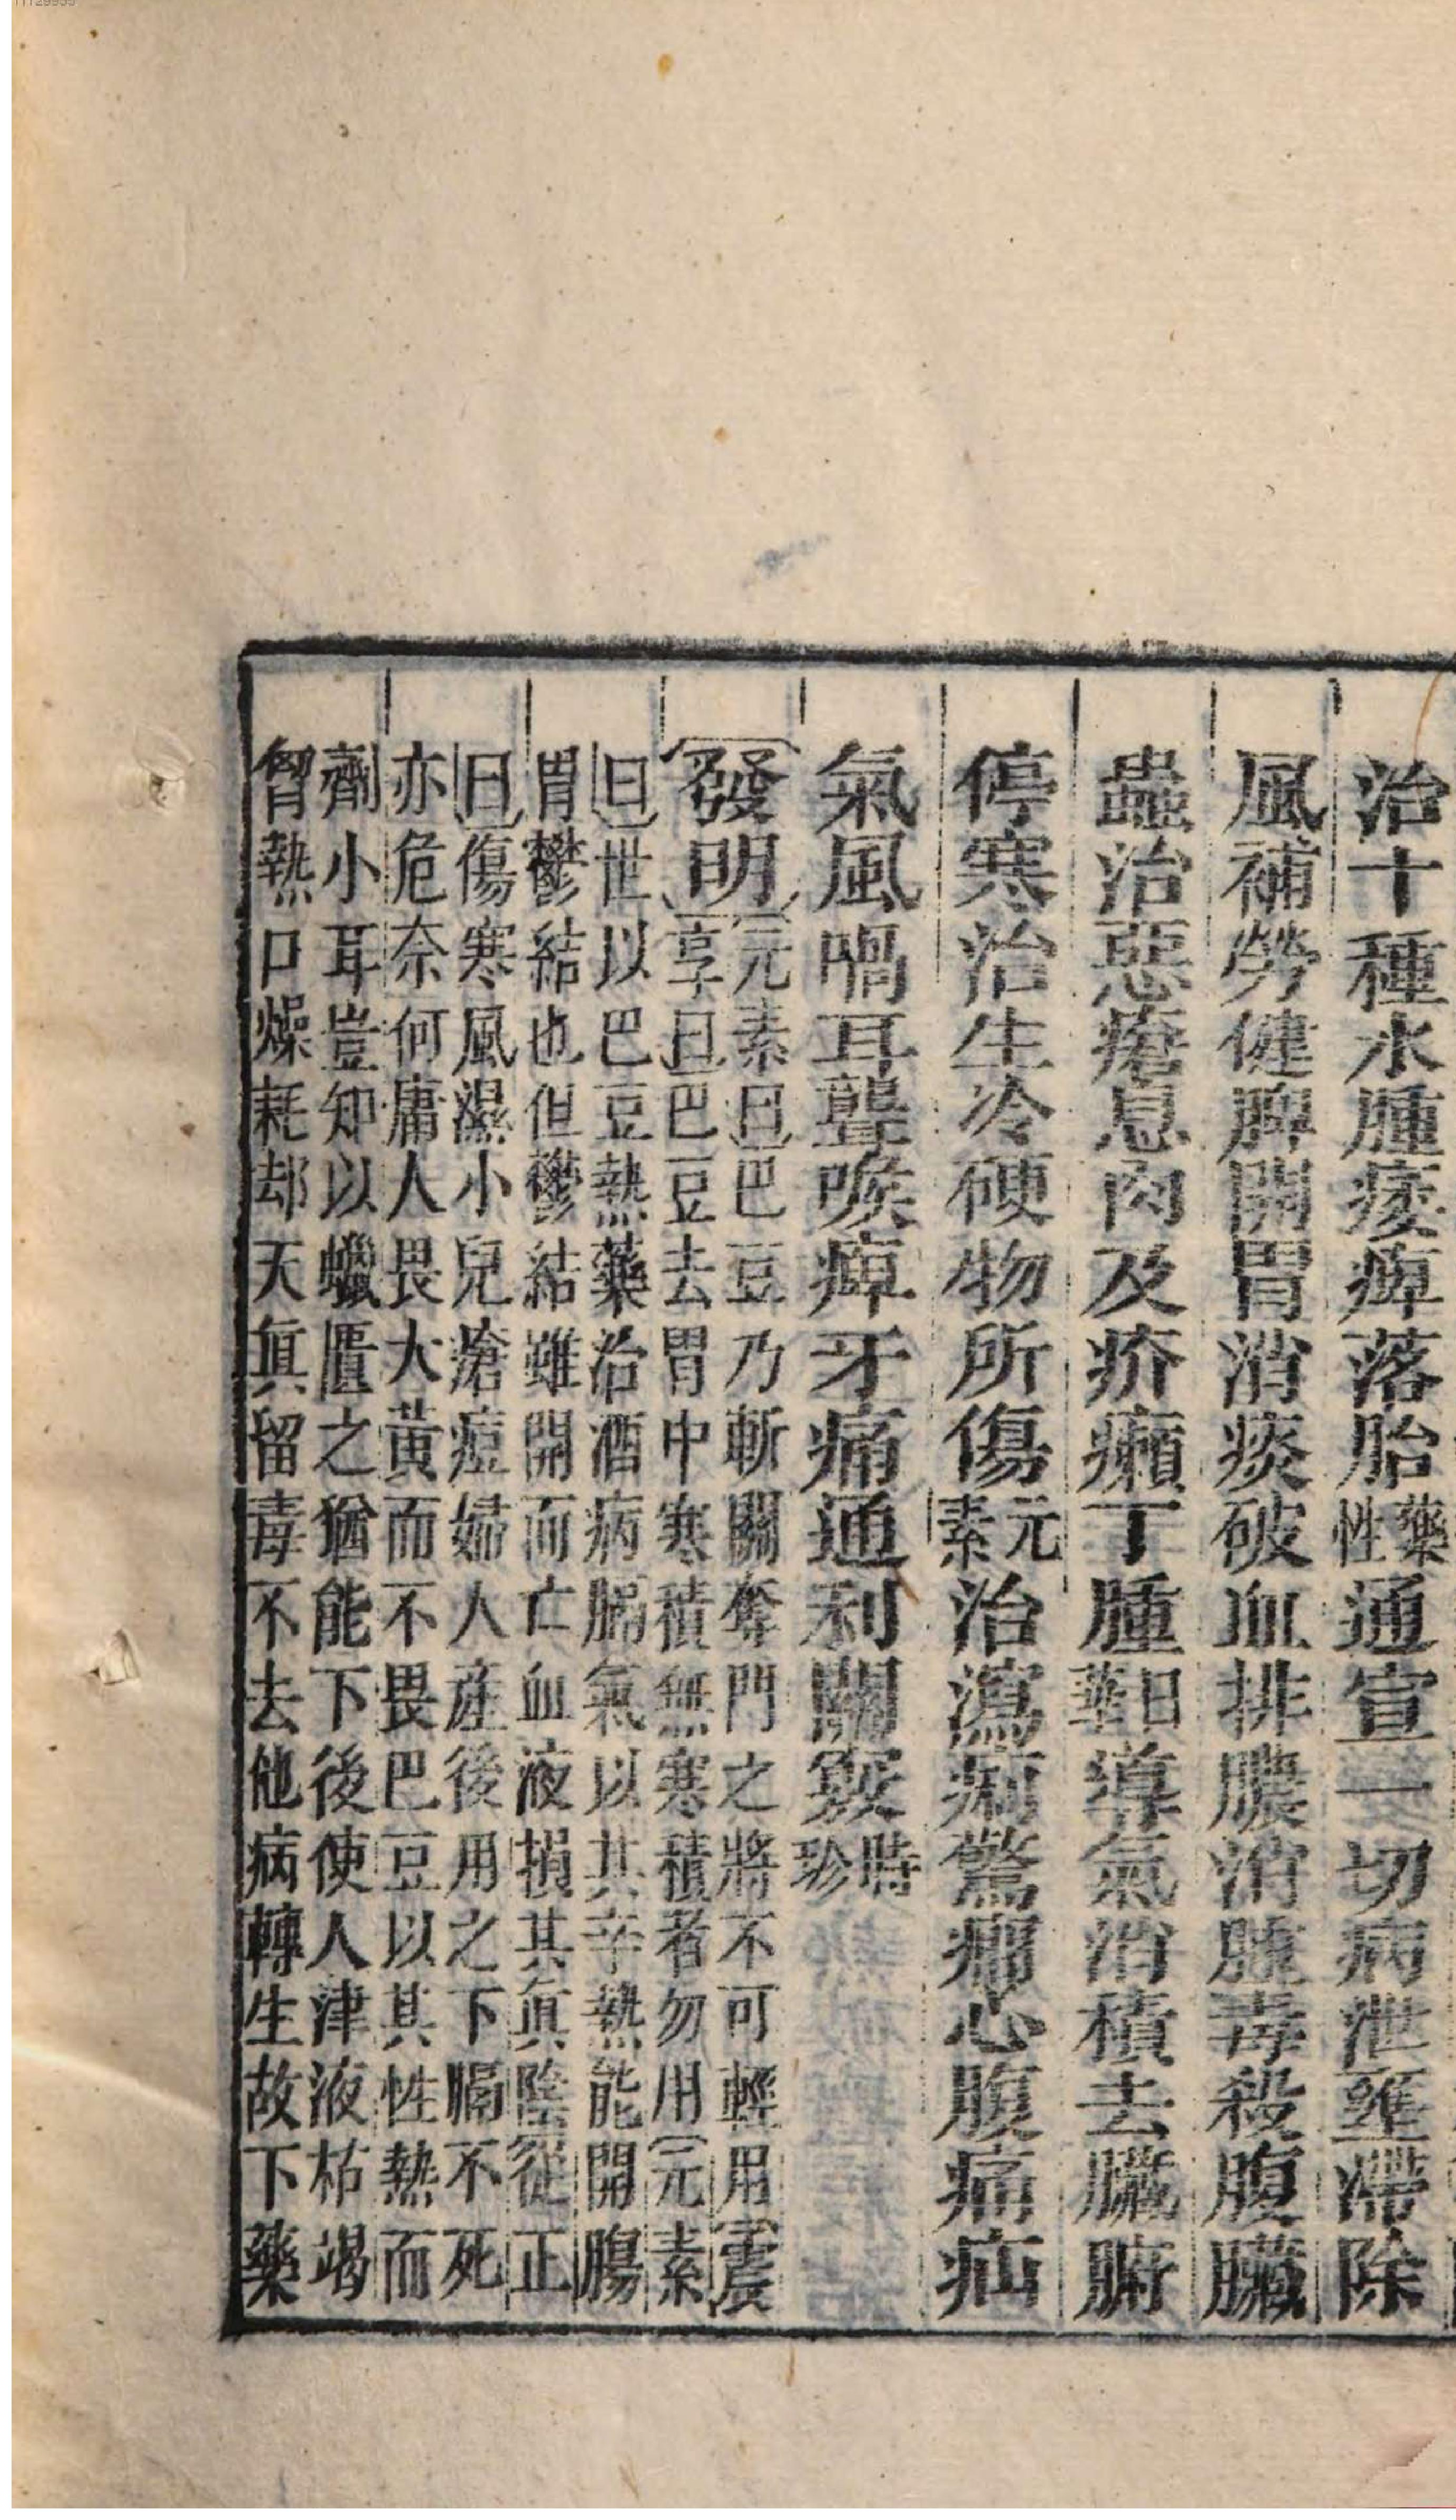 治十種水腫痿痺落胎藥性通宣一切病泄壅滯除
風補勞健脾開胃消痰破血排膿消腫毒殺腹臟
蟲治惡瘡息肉及疥癩丁腫日華導氣消積去臟腑
停寒治生冷硬物所傷元素治瀉痢驚癇心腹痛疝
氣風喎耳聾喉痺牙痛通利關竅時珍
發明元素曰巴豆乃斬關奪門之將不可輕用震
亨曰巴豆去胃中寒積無寒積者勿用元素
曰世以巴豆熱藥治酒病膈氣以其辛熱能開腸
胃鬱結也但鬱結雖開而亡血液損其眞陰從正
曰傷寒風濕小兒瘡痘婦人產後用之下膈不死
亦危奈何庸人畏大黃而不畏巴豆以其性熱而
劑小耳豈知以蠟匱之猶能下後使人津液枯竭
胷熱口燥耗却天眞留毒不去他病轉生故下藥